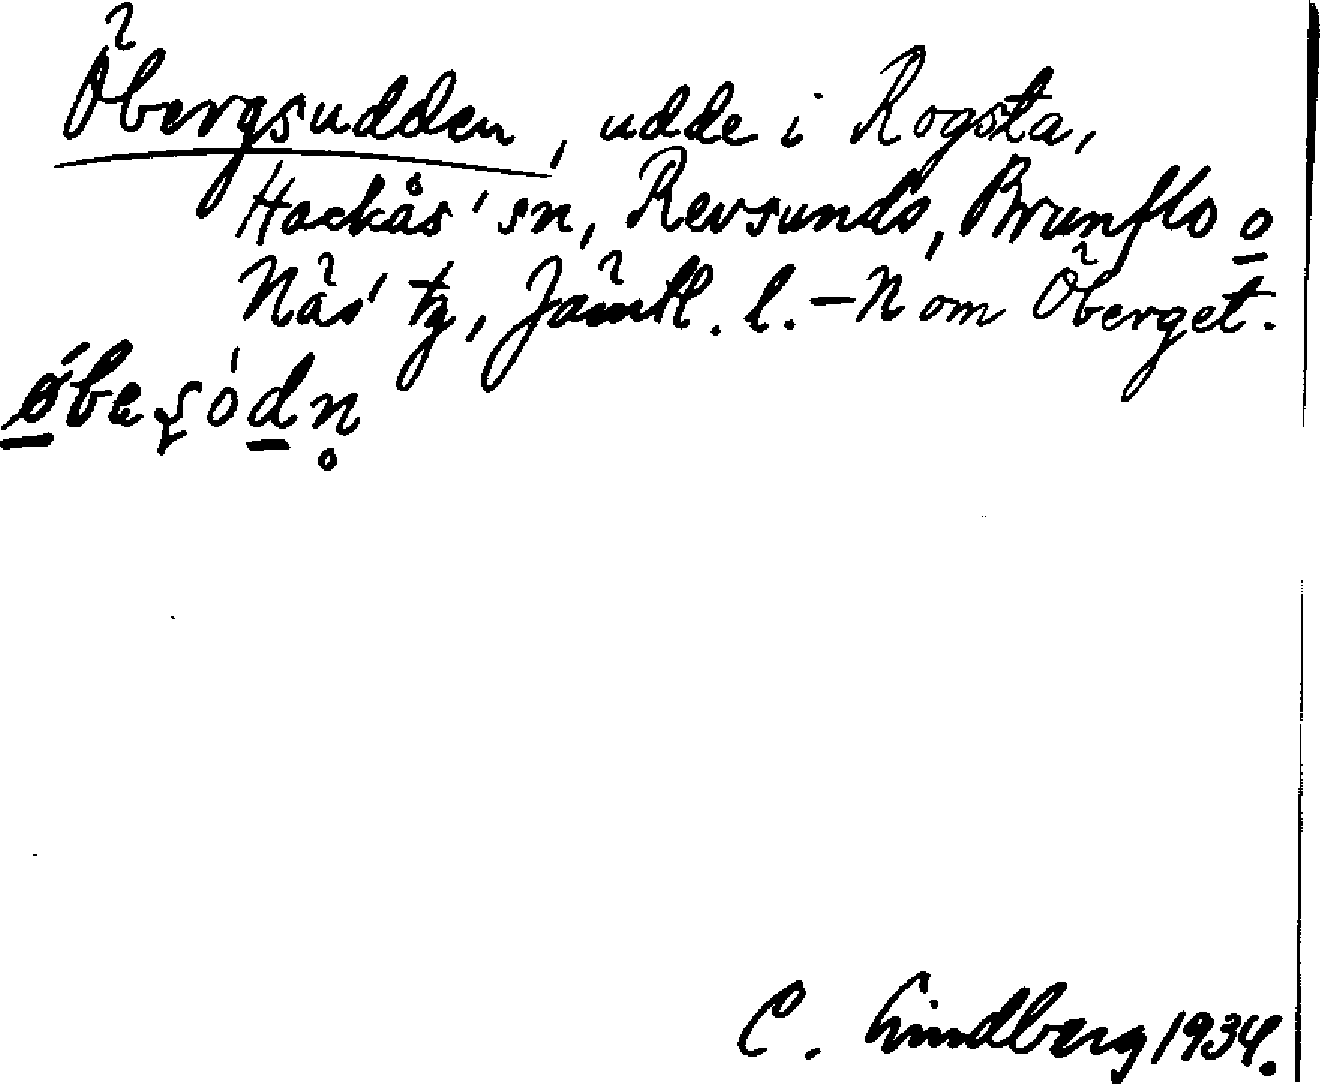 Öbergsudden, udde i Rogsta,
Hackås' sn, Revsunds, Brunflo o
Näs' tg, Jämtl. l. – N om Öberget.
ǿbeʂód̲n̥
C. Lindberg 1934.